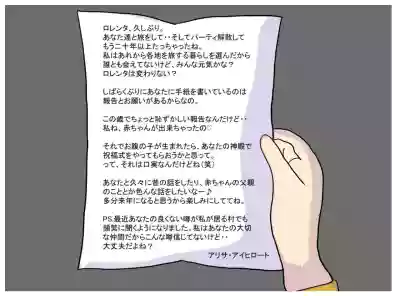 ロレンタ、久しぶり。
あなた達と旅をして・・そしてパーティ解散して
もう二十年以上たっちゃったね。
私はあれから各地を旅する暮らしを選んだから
誰とも会えてないけど、みんな元気かな？
ロレンタは変わりない？
しばらくぶりにあなたに手紙を書いているのは
報告とお願いがあるからなの。
この歳でちょっと恥ずかしい報告なんだけど・・
私ね、赤ちゃんが出来ちゃったの♡
それでお腹の子が生まれたら、あなたの神殿で
祝福式をやってもらおうかと思って。
って、それは口実なんだけどね（笑）
あなたと久々に昔の話をしたり、赤ちゃんの父親
のこととか色んな話をしたいなー♪
多分来年になると思うから楽しみにしててね。
P.S.最近あなたの良くない噂が私が居る村でも
頻繁に聞くようになりました。私はあなたの大切
な仲間だからこんな噂信じてないけど・・
大丈夫だよね？
アリサ・アイヒロート